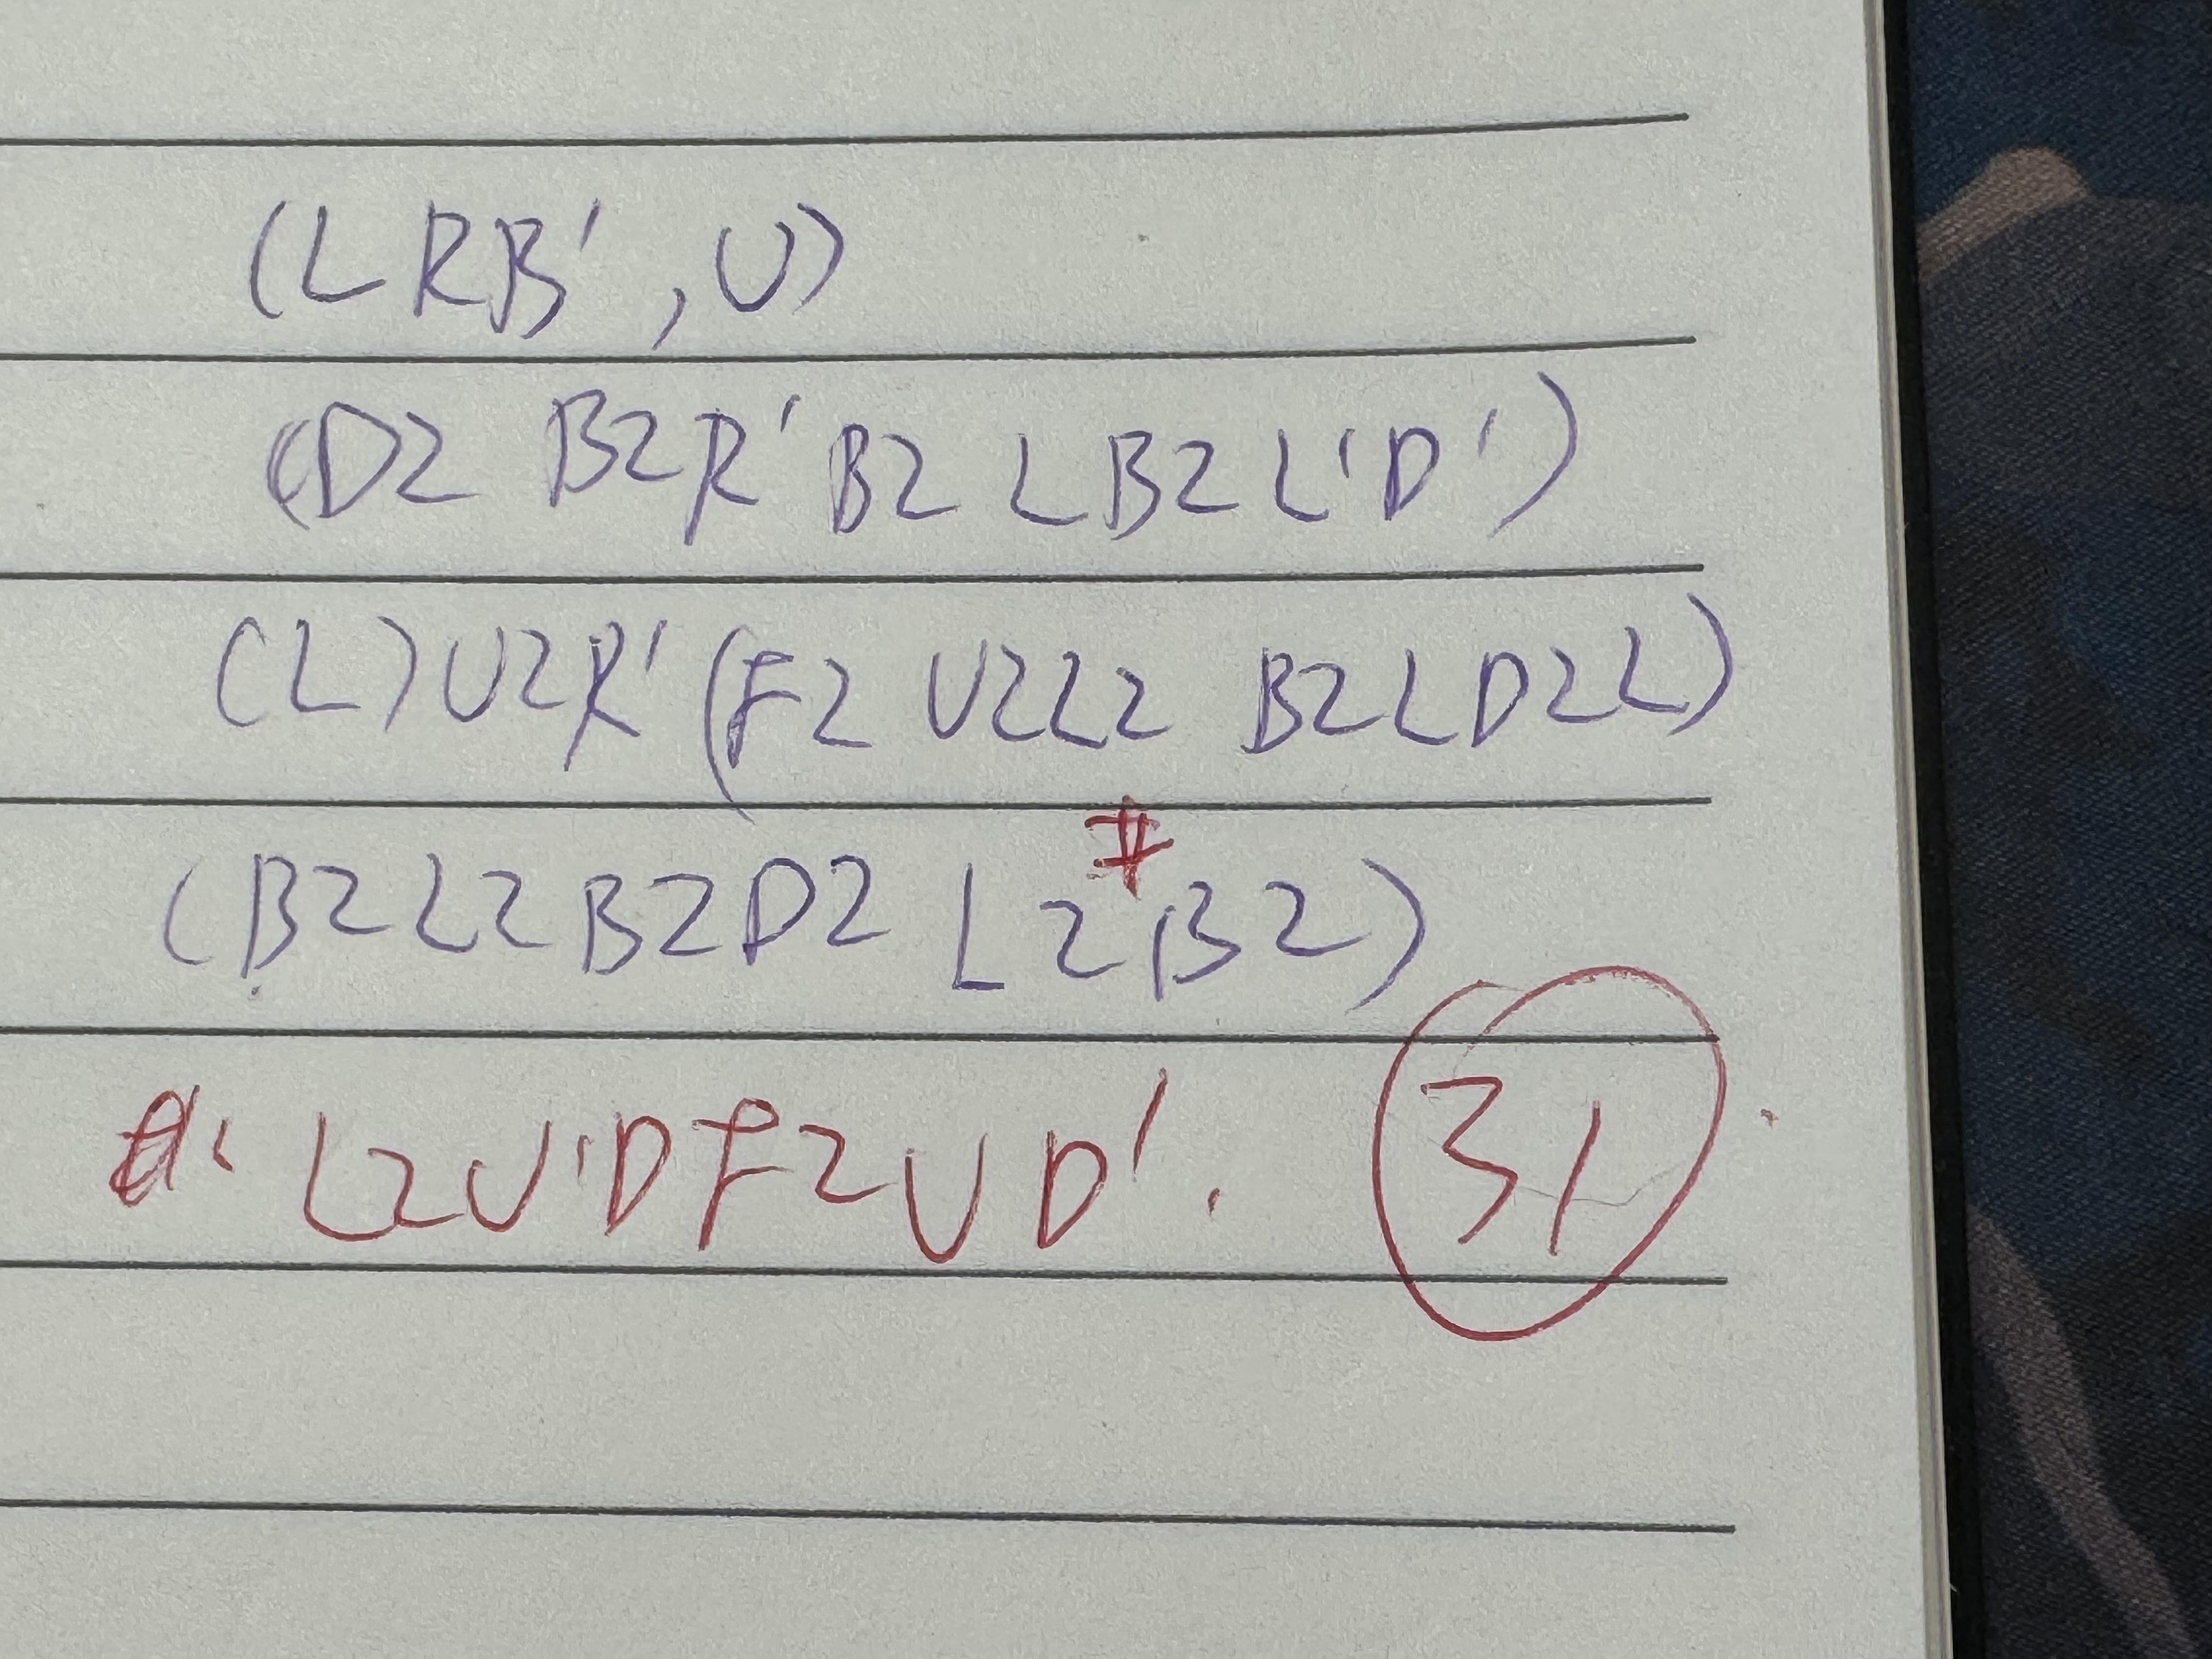 (L R B' , U)
(D2 B2 R' B2 L B2 L' D')
(L) U2 R' (F2 U2 L2 B2 L D2 L)
#
(B2 L2 B2 D2 L2 B2)
#: L2 U' D F2 U D'. 31